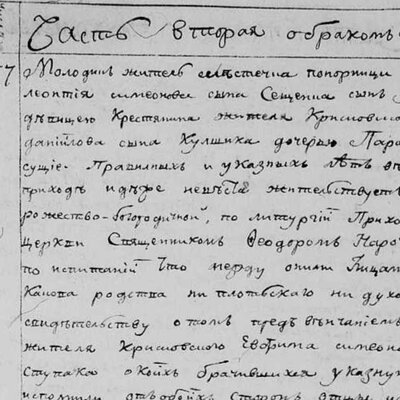 Часть вторая о бракомъ
7 Молодикъ житель мѣстечка попорници
леонтія симеонова сына Сещенка сынъ
дѣвицею Крестянина жителя Криспово
даніилова сына Кулшика дочерью Пара
сущіе Правилныхъ и указныхъ лѣтъ въ
приходѣ идѣже невѣста жителствуетъ
рожество-богородичной, по литургіи Прихо
церкви Священникомъ Феодоромъ Наро
по испитаній что между оними Лицам
Какова родства ни плотскаго ни духо
свидѣтелству о томъ предъ вѣнчаніемъ
жителя Евфима симеоно
ступака о коихъ брачившихся указну
исполнили отъ обоихъ сторонъ отцы и